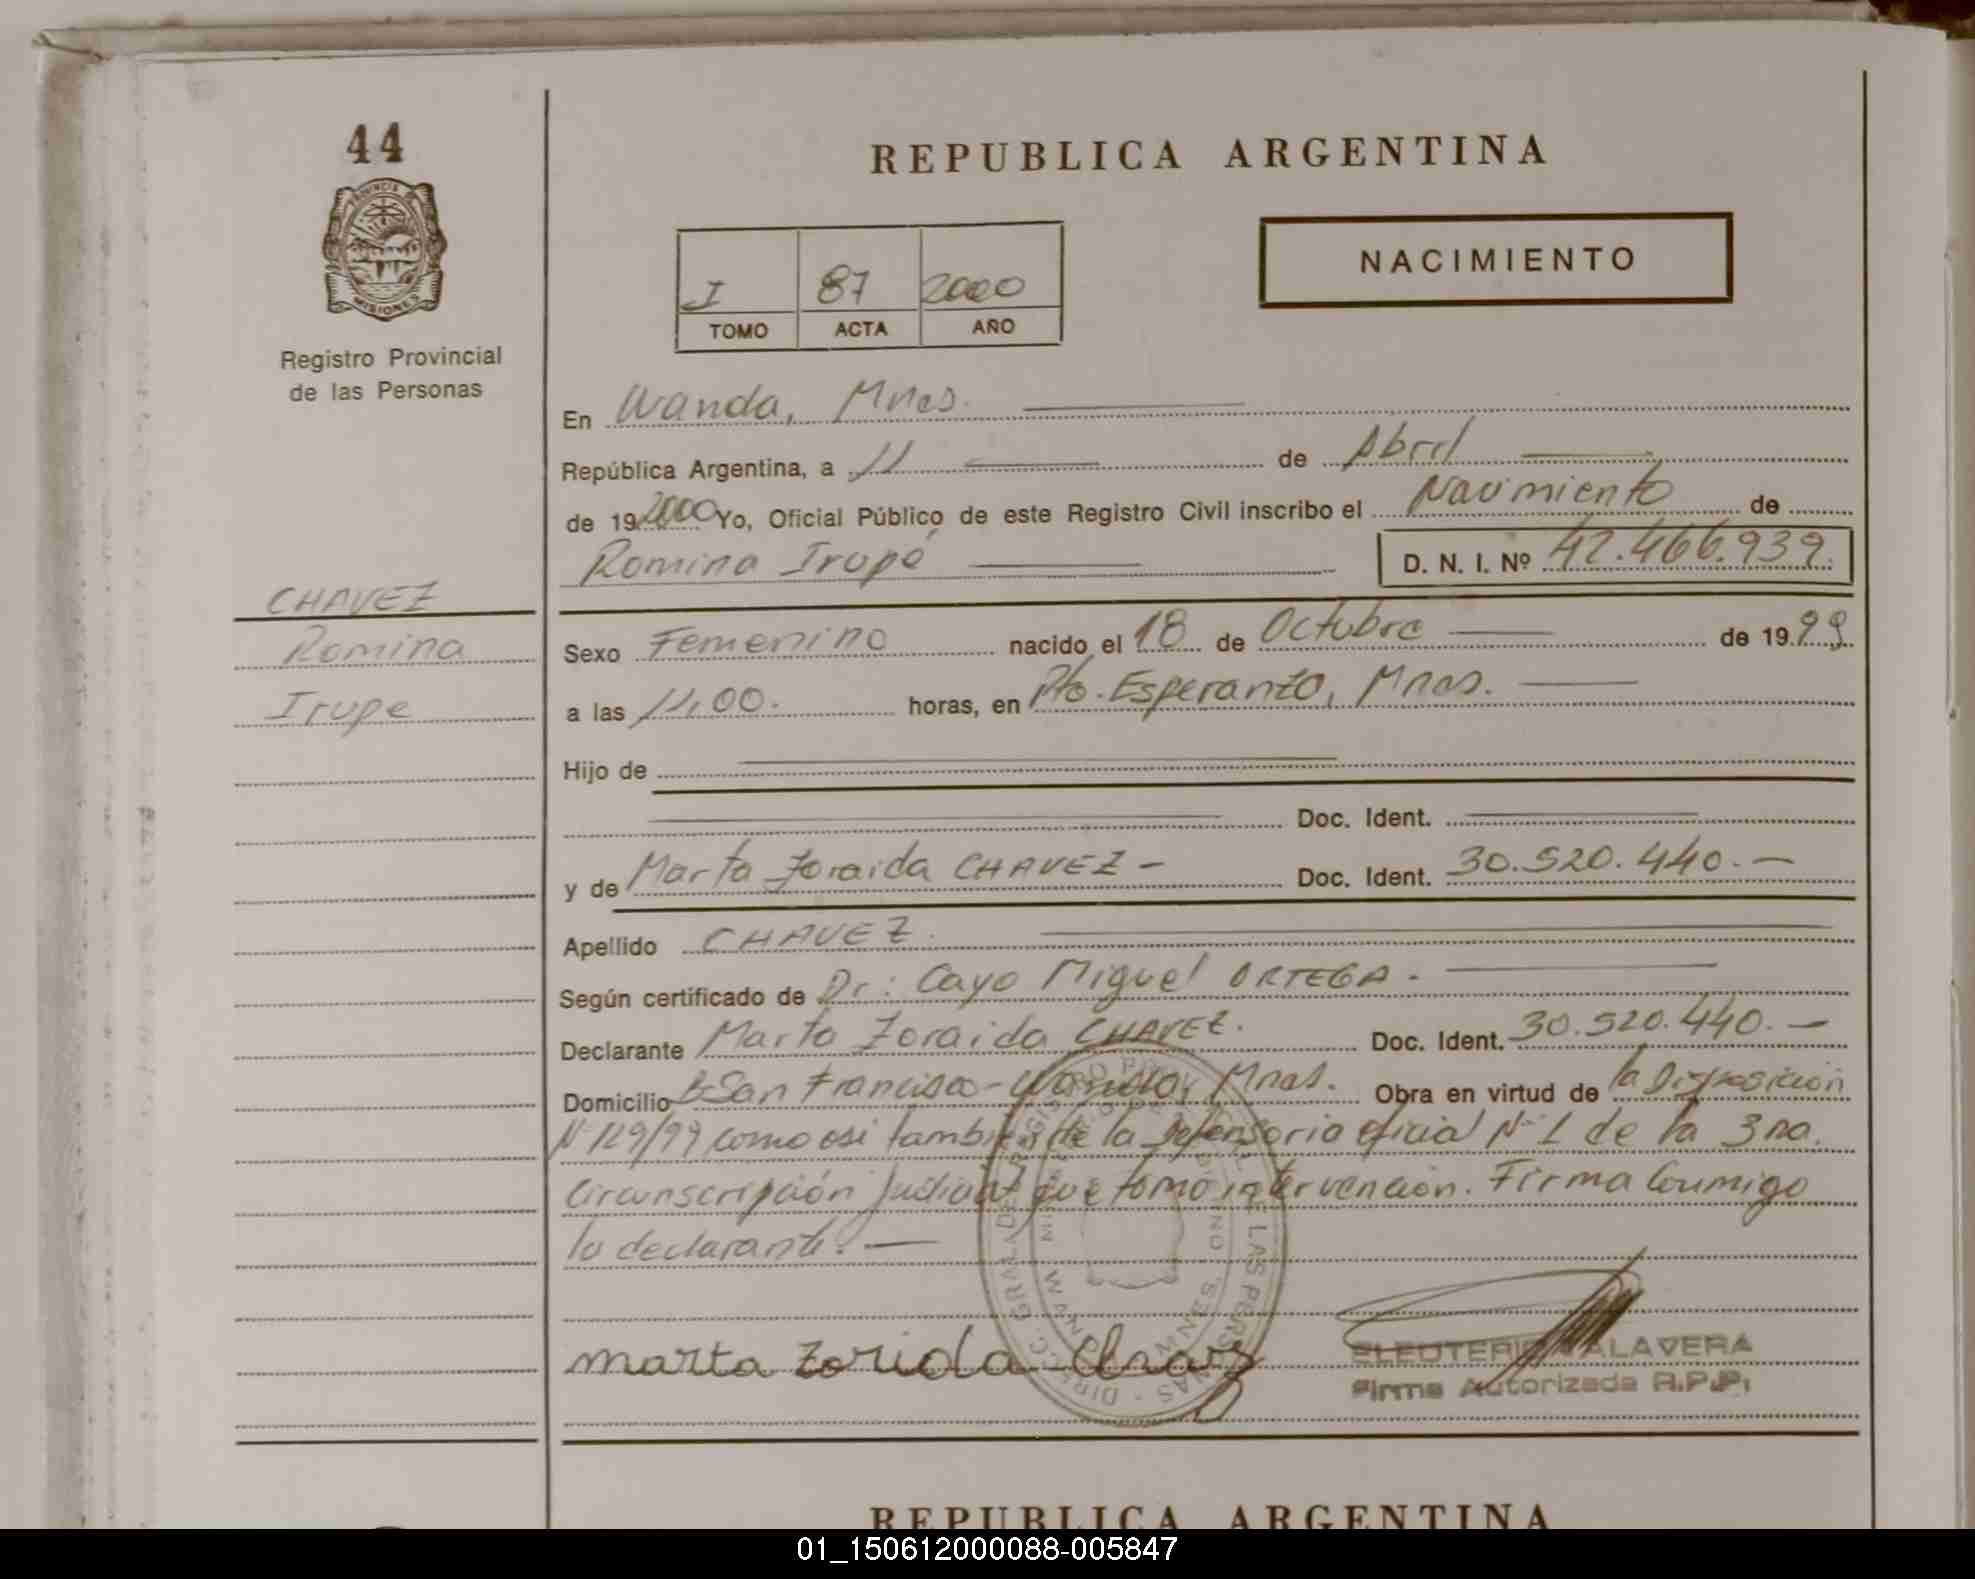 44
PROVINCIA DE
MISIONES
Registro Provincial
de las Personas
CHAVEZ
Romina
Irupe
REPUBLICA ARGENTINA
I 87 2000
TOMO ACTA AÑO
NACIMIENTO
En Wanda, Mnes.
República Argentina, a 11 de Abril
de 192000 Yo, Oficial Público de este Registro Civil inscribo el Nacimiento de
Romina Irupé D. N. I. Nº 42.466.939.
Sexo Femenino nacido el 18 de Octubre de 1999
a las 11,00. horas, en Pto. Esperanza, Mnes.
Hijo de
Doc. Ident.
y de Marta Zoraida CHAVEZ - Doc. Ident. 30.520.440.-
Apellido CHAVEZ.
Según certificado de Dr: Cayo Miguel ORTEGA.
Declarante Marta Zoraida CHAVEZ. Doc. Ident. 30.520.440.-
Domicilio Bº San Francisco - Wanda, Mnes. Obra en virtud de la Disposición
Nº 129/99 como asi tambien de la Defensoria oficial Nº 1 de la 3ra.
Circunscripción Judicial que tomo intervención. Firma Conmigo
la declarante.-
marta zorida Chavez
ELEUTERIO TALAVERA
Firma Autorizada R.P.P.
REPUBLICA ARGENTINA
01_150612000088-005847